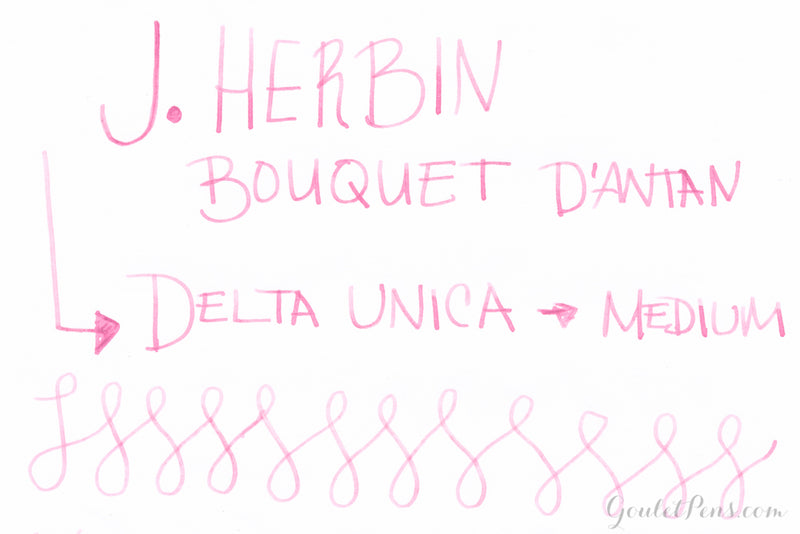 J. HERBIN
BOUQUET D'ANTAN
DELTA UNICA → MEDIUM
GouletPens.com